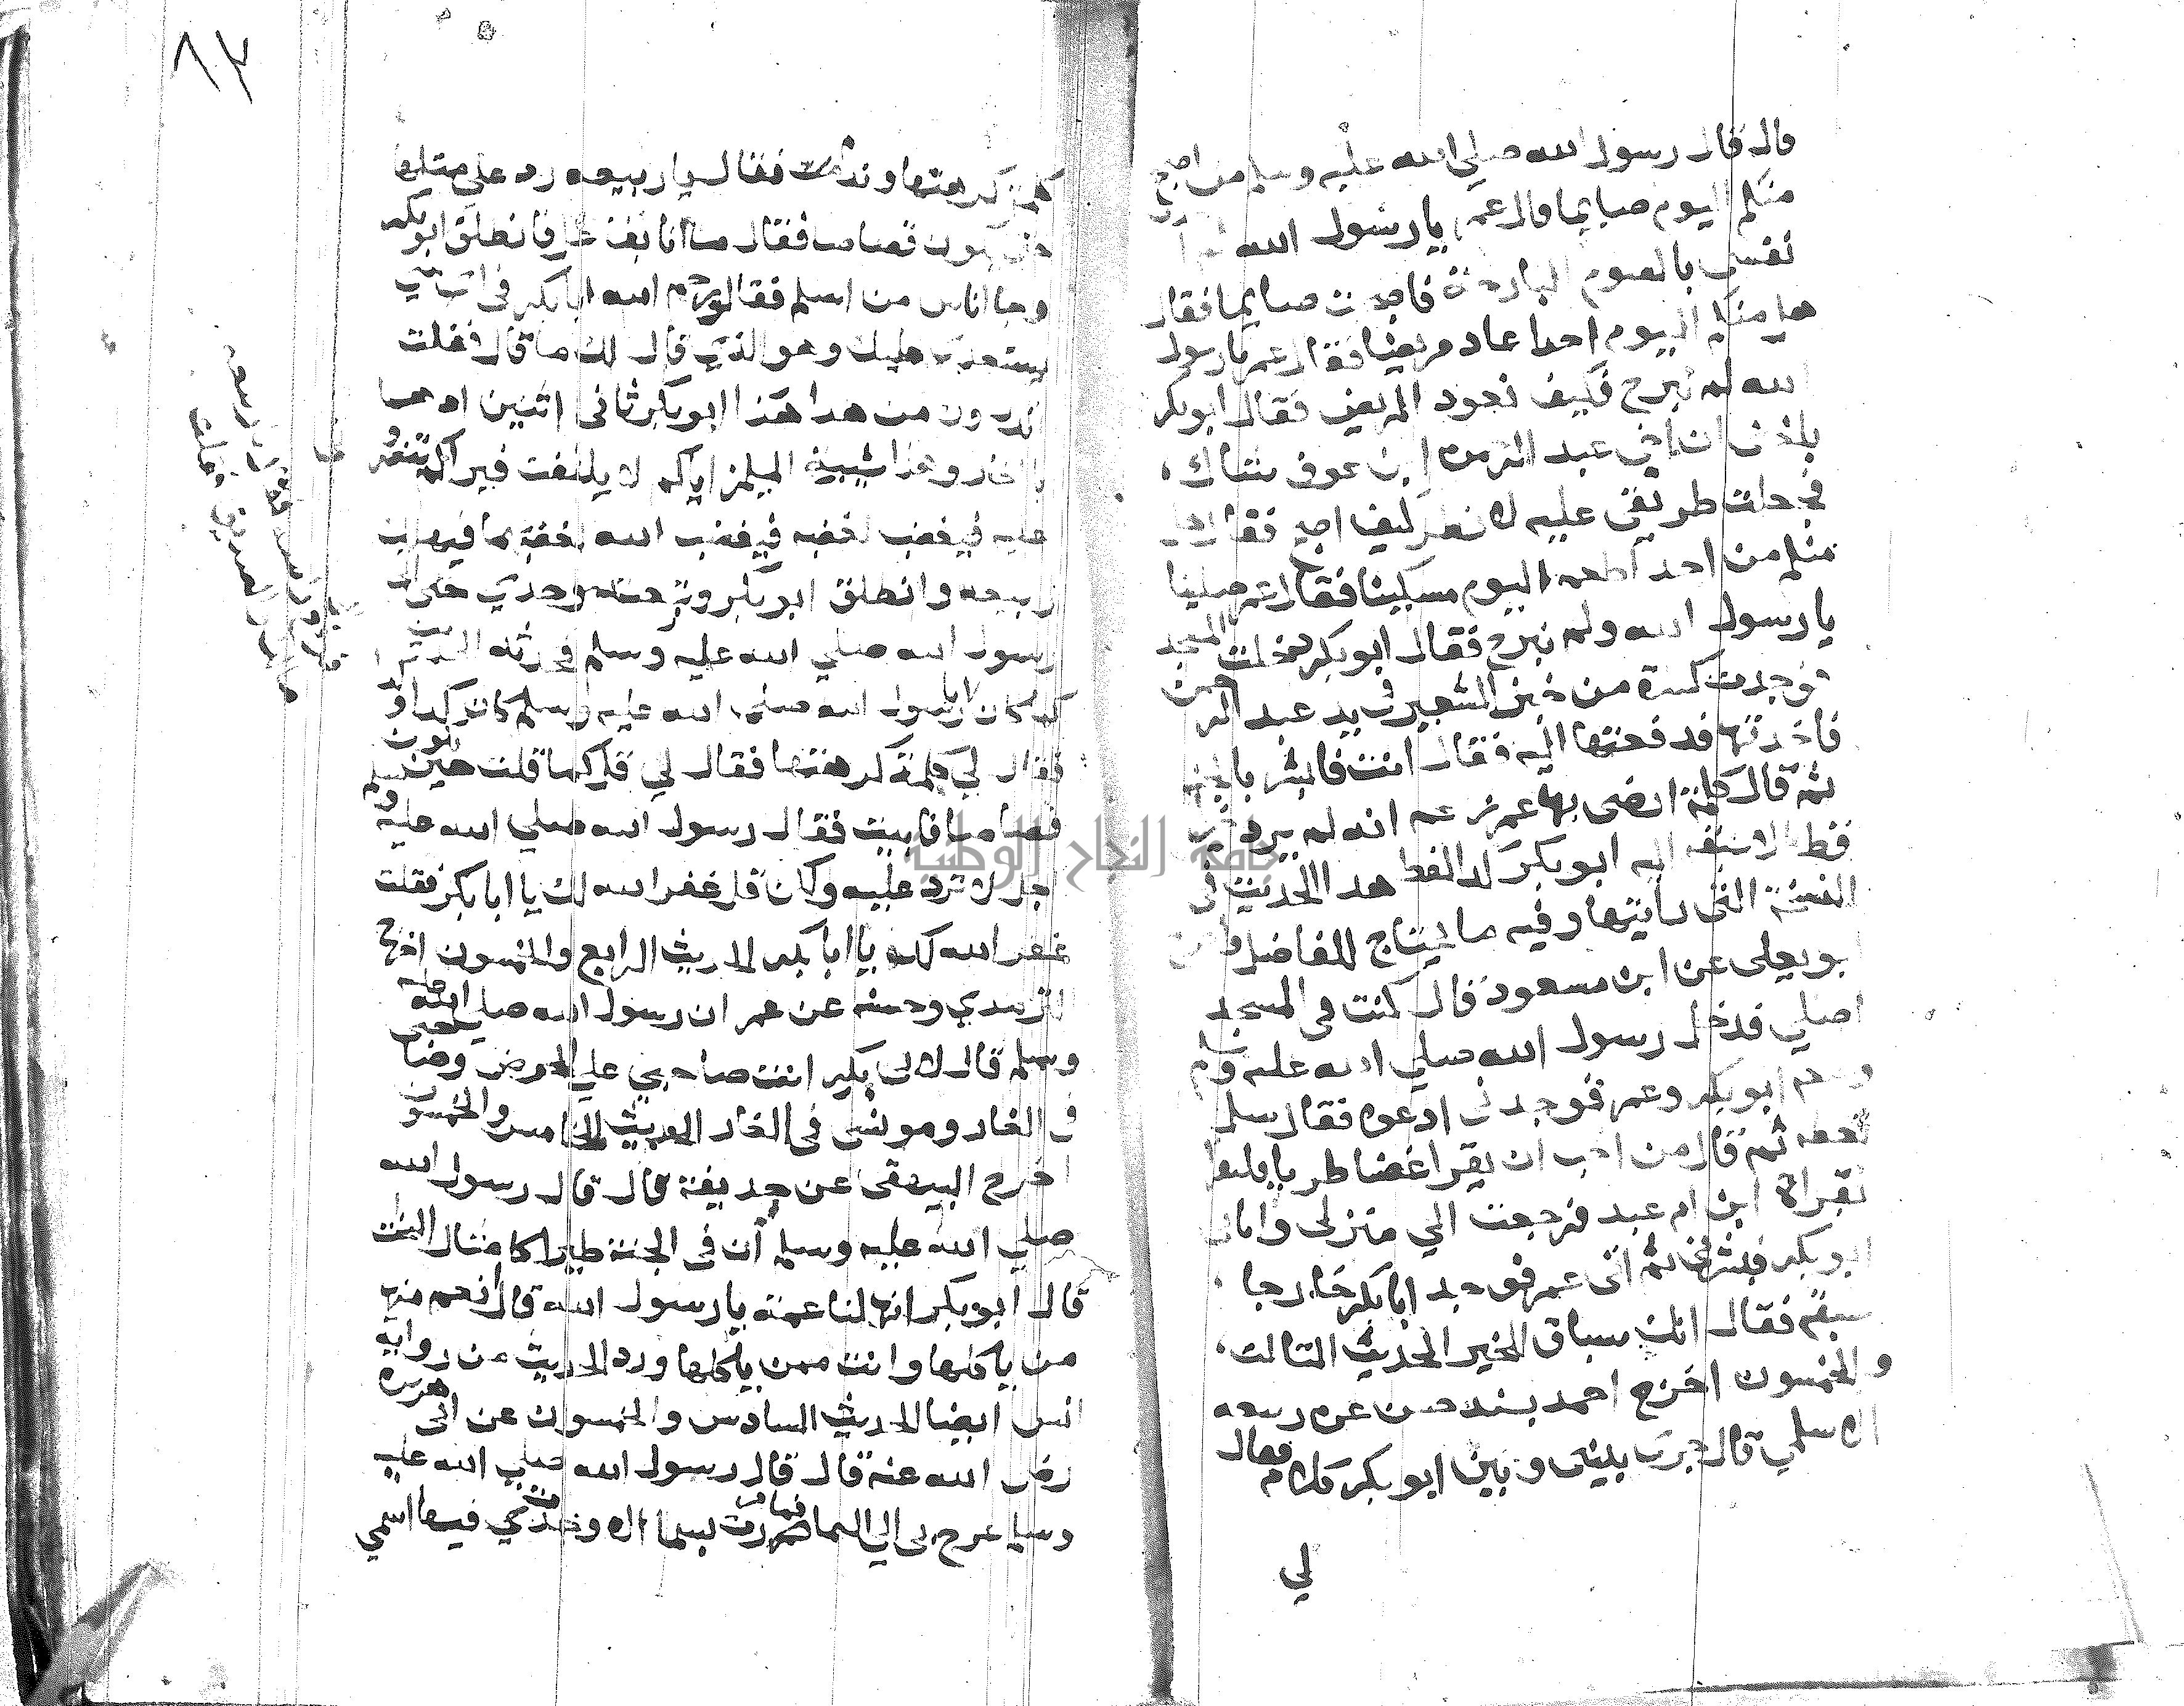 قال قال رسول الله صلي الله عليه وسلم من اصبح
منكم اليوم صايما قال عمر يا رسول الله لم
نفسي بالصوم البارحة فاصبحت صايما فقال
هل منكم اليوم احدا عاد مريضا فقال عمر يا رسول
الله لم نبرح فكيف نعود المريض فقال ابو بكر
بلغني ان اخي عبد الرحمن ابن عوف شاك
فجعلت طريقي عليه لانظر كيف اصبح فقال هل
منكم من احد اطعم اليوم مسكينا فقال عمر صلينا
يا رسول الله ولم نبرح فقال ابو بكر دخلت المسجد
فوجدت كسرة من خبز الشعير في يد عبد الرحمن
فاخذتها فدفعتها اليه فقال انت فابشر بالجنة
ثم قال كلمة ارضى بها عمر زعم انه لم يرد
قط الا سبقه اليه ابو بكر كذا لفظ هذا الحديث في
النسخة التي رايتها وفيه ما يحتاج للفاضل
ابو يعلى عن ابن مسعود قال كنت في المسجد
اصلي فدخل رسول الله صلي الله عليه وسلم
ابو بكر وعمر فوجدني ادعوه فقال سل
تعطه ثم قال من احب ان يقرا غضا طريا فليقرا
بقراة ابن ام عبد فرجعت الي منزلي واتاني
ابو بكر فبشرني ثم اتى عمر فوجد ابا بكر خارجا
سبقه فقال انك سباق للخير الحديث الثالث
والخمسون اخرج احمد بسند حسن عن ربيعه
الاسلمي قال جرى بيني وبين ابو بكر كلام فقال
لي
٨٣
كلمة كرهتها وندمت فقال يا ربيعه رد علي مثلها
حتي يكون قصاصا فقال ما انا بفاعل فانطلق ابو بكر
وجا اناس من اسلم فقالو يرحم الله ابا بكر في اي شي
يستعدي عليك وهو الذي قال لك ما قال فقلت
تدرون من هذا هذا ابو بكر ثاني اثنين اذ هما
في الغار وهذا شيبة المسلمين اياكم لا يلتفت فيراكم تنصرو
عليه فيغضب لغضبه فيغضب الله لغضبهما فيهلك
ربيعه وانطلق ابو بكر وتبعته وحدي حتي اتي
رسول الله صلي الله عليه وسلم فحدثه الحديث
كما كان يا رسول الله صلى الله عليه وسلم كان كذا وكذا
فقال لي كلمة كرهتها فقال لي قل كما قلت حتي يكون
قصاصا فابيت فقال رسول الله صلي الله عليه وسلم
اجل لا ترد عليه ولكن قل غفر الله لك يا ابا بكر فقلت
غفر الله لك يا ابا بكر الحديث الرابع والخمسون اخرج
الترمدي وحسنه عن عمر ان رسول الله صلي الله عليه
وسلم قال لابي بكر انت صاحبي علي الحوض وصاحبي
في الغار ومونسي في الغار الحديث الخامس والخمسون
اخرج البيهقي عن حذيفة قال قال رسول الله
صلي الله عليه وسلم ان في الجنة طيرا كامثال البخت
قال ابو بكر انها لناعمة يا رسول الله قال انعم منها
من ياكلها وانت ممن ياكلها ورد الحديث من رواية
انس ايضا الحديث السادس والخمسون عن ابي هريرة
رضي الله عنه قال قال رسول الله صلي الله عليه
وسلم عرج بي الي السما فما مررت بسما الا وجدت فيها اسمي
جامعة النجاح الوطنية